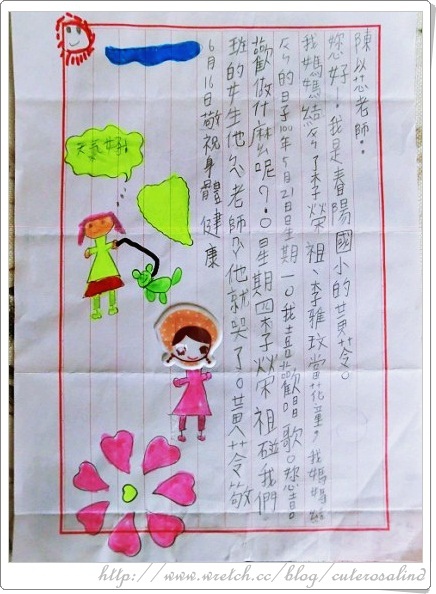 陳以芯老師：
妳好！我是春陽國小的黃苓。
我媽媽結婚了李榮祖、李雅玟當花童，我媽媽
的日子100年5月21日星期一。我喜歡唱歌。您喜
歡做什麼呢？。星期四李榮祖碰我們
班的女生他老師他就哭了。黃苓敬
6月16日敬祝身體健康
天氣好！
http://www.wretch.cc/blog/cuterosalind